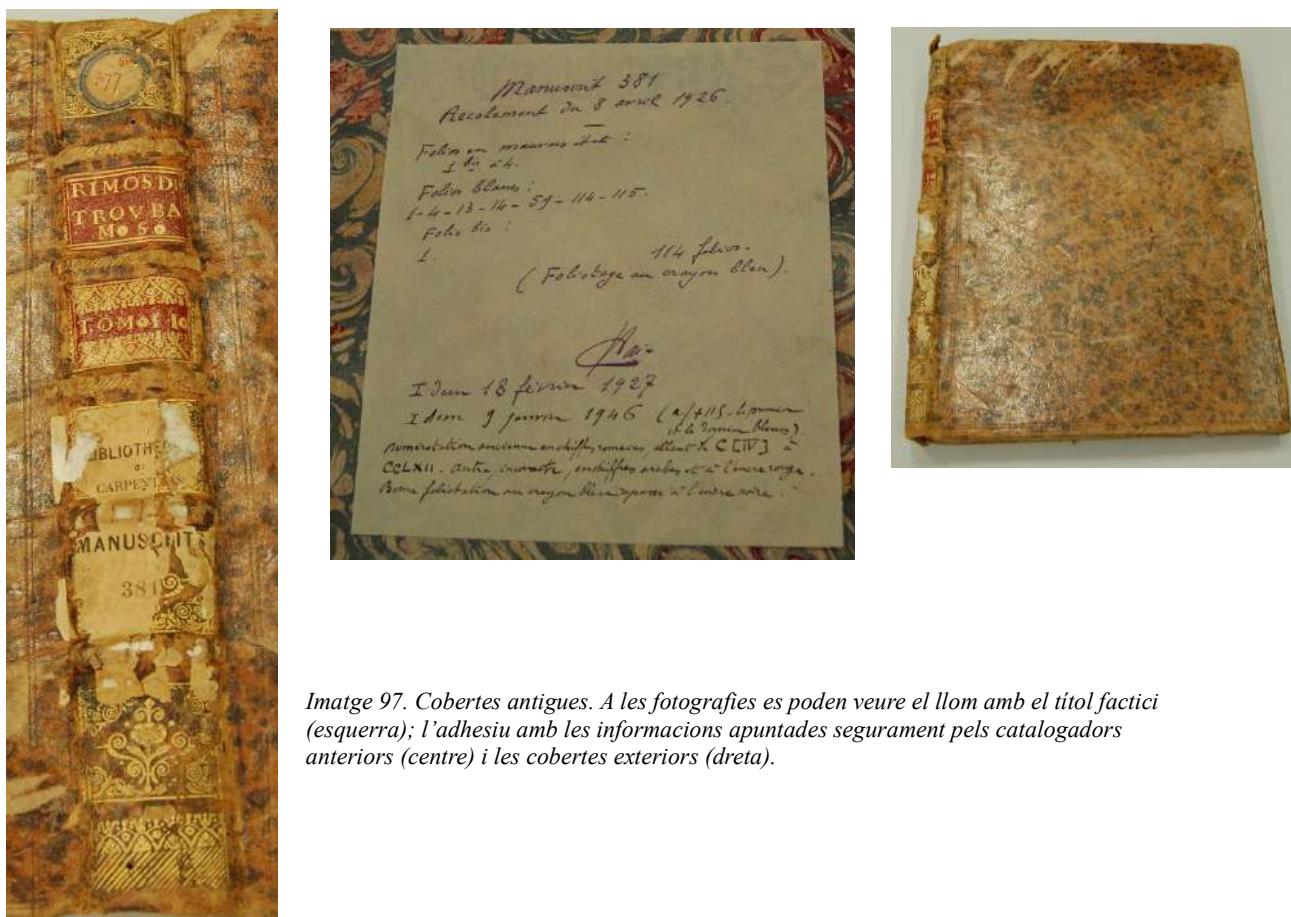 677
RIMOS D
TROVBA
MOSO
TOMO
BIBLIOTHE
DE
CARPENTRAS
MANUSCRIT
381
Manuscrit 381
Recolement du 8 avril 1926.
Folios en mauvais état :
I bis à 4.
Folios blancs :
1-4-13-14-59-114-115.
Folio bis :
1.
114 folios.
(Foliotage au crayon bleu).
Idem 18 février 1927
Idem 9 janvier 1946 (a/+115. le premier
et le dernier blancs)
numérotation ancienne en chiffres romains allant de C[IV] à
CCLXII. Autre, en chiffres arabes et à l'encre rouge.
Bonne foliotation au crayon bleu à l'encre noire.
Imatge 97. Cobertes antigues. A les fotografies es poden veure el llom amb el títol factici
(esquerra); l’adhesiu amb les informacions apuntades segurament pels catalogadors
anteriors (centre) i les cobertes exteriors (dreta).